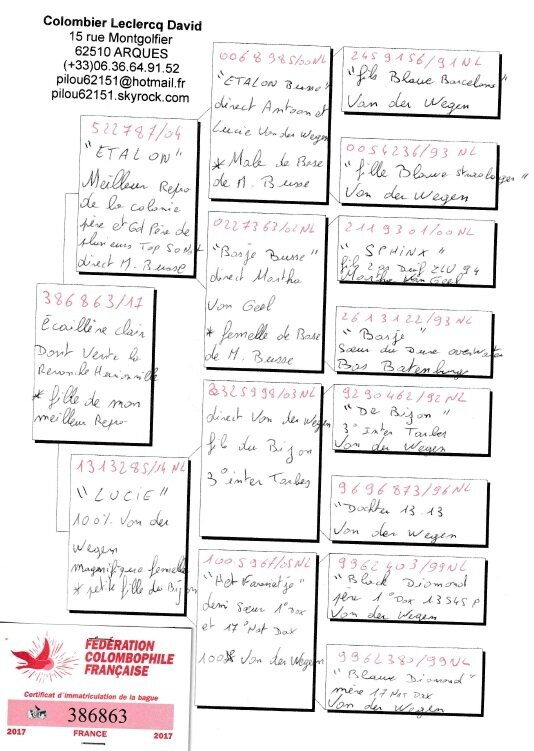 Colombier Leclercq David
15 rue Montgolfier
62510 ARQUES
(+33)06.36.64.91.52
pilou62151@hotmail.fr
pilou62151.skyrock.com
386863/17
Écaillère clair
Dont Vente la
* fille de mon
meilleur Repro
522787/04
"ETALON"
Meilleur Repro
de la colonie
père et Gd Père de
plusieurs Top 50 Nat
direct M. Busse
1313285/14 NL
"LUCIE"
100% Von der
Wegen
magnifique femelle
* petite fille du Bijon
0068985/00 NL
"ETALON Busse"
direct Antoon et
Lucie Van der Wegen
* Male de Base
de M. Busse
0227363/02 NL
"Basje Busse"
direct Martha
Von Geel
* femelle de Base
de M. Busse
2325998/03 NL
direct Von der Wegen
fils du Bijon
3° inter Tarbes
1005967/05 NL
"Het Faramatje"
demi Sœur 1° Dax
et 17° Nat Dax
100% Von der Wegen
2459156/91 NL
"fils Blauwe Barcelona"
Van der Wegen
0054236/93 NL
"fille Blauwe
Van der Wegen
2119301/00 NL
"SPHINX"
Martha Van Geel
2613122/93 NL
"Basje"
Sœur du
Bas Batenburg
9290462/92 NL
"De Bijon"
3° Inter Tarbes
Van der Wegen
9696873/96 NL
"Dochter 13.13
Van der Wegen
9962403/99 NL
"Black Diamond
père 1° Dax 13545 P
Van der Wegen
9962380/99 NL
"Blauw Diamond"
mère 17 Nat Dax
Van der Wegen
FÉDÉRATION
COLOMBOPHILE
FRANÇAISE
Certificat d'immatriculation de la bague
386863
2017 FRANCE 2017